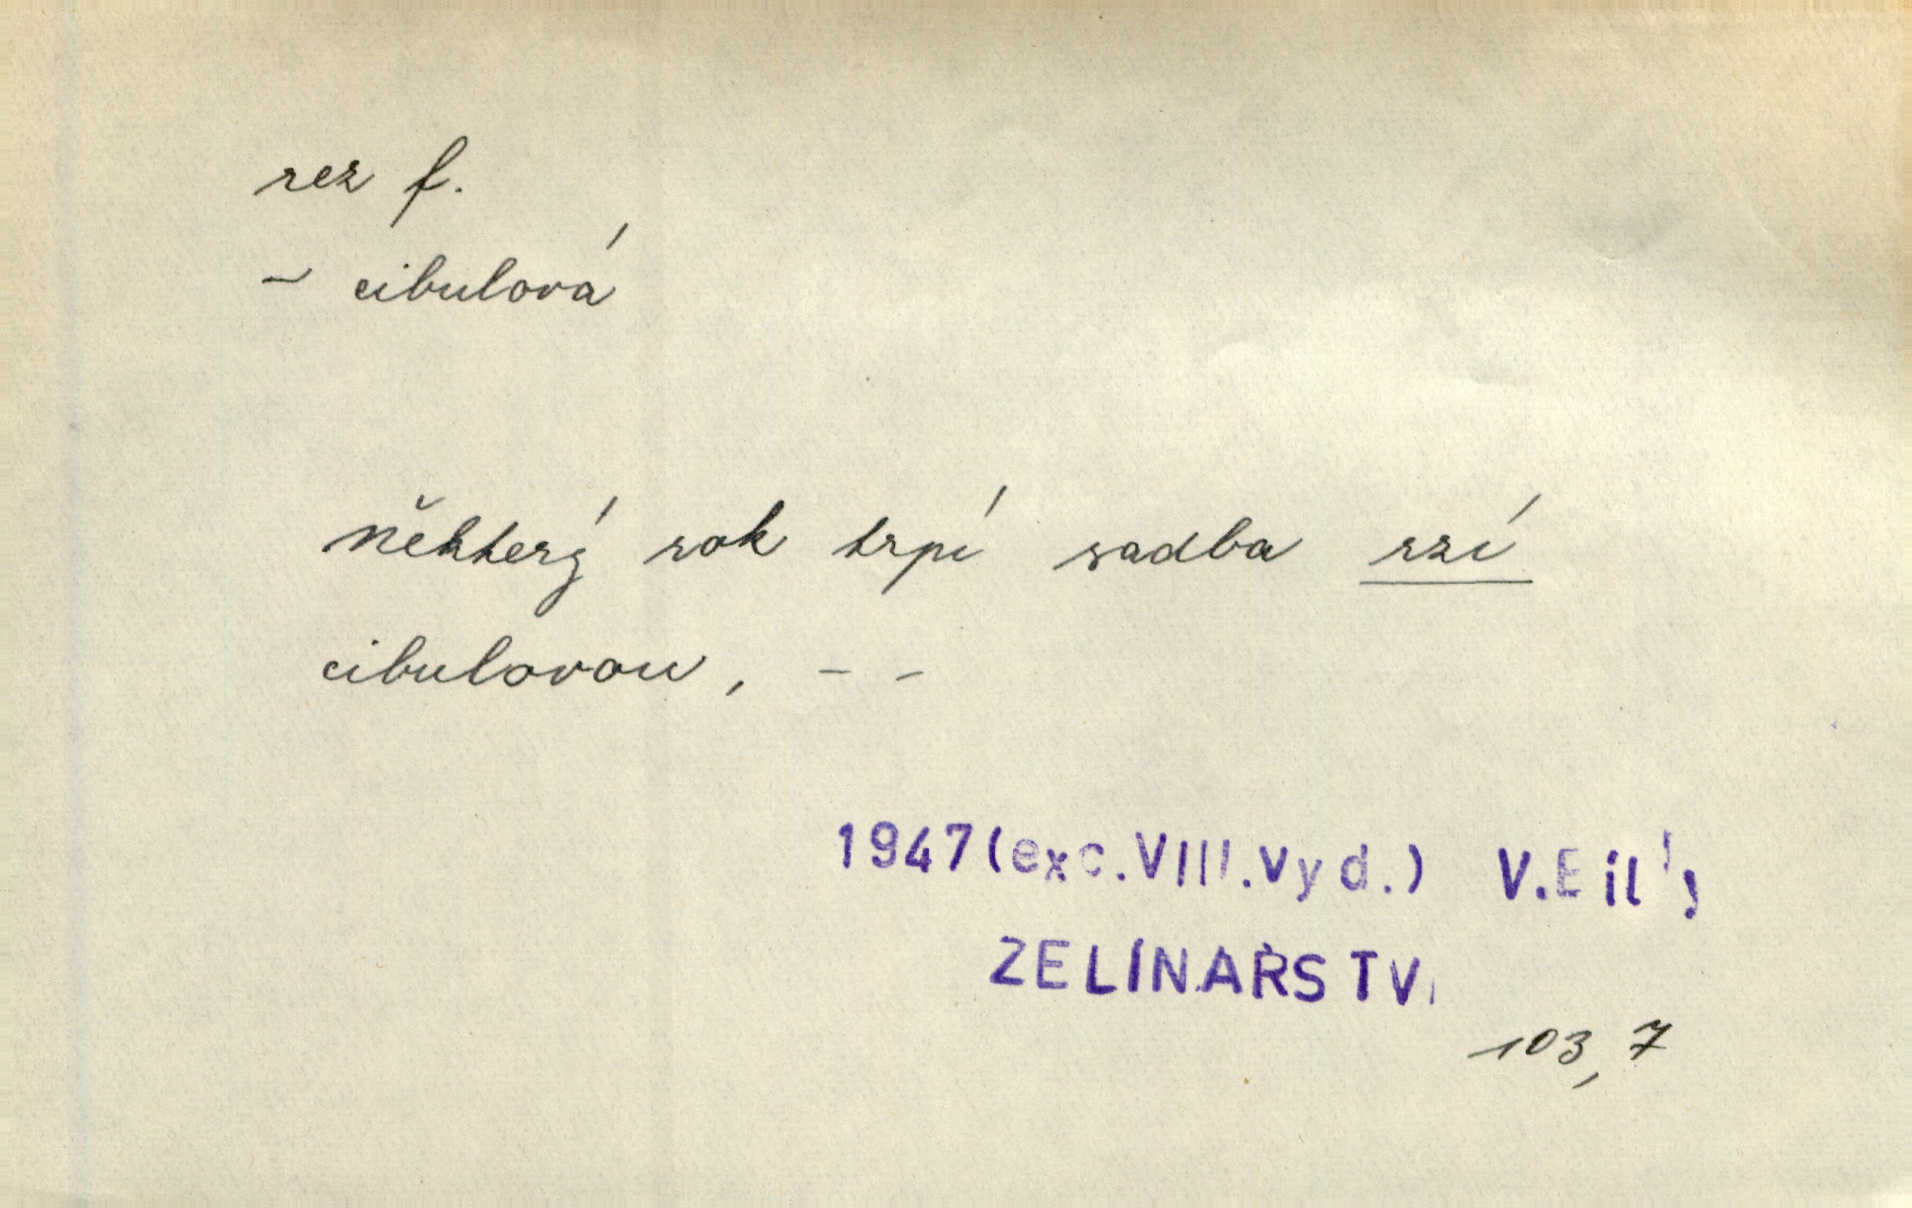 rez f.
– cibulová
Některý rok trpí sadba rzí
cibulovou, – –
1947 (exc. VIII. vyd.) V.
ZELINÁŘSTV
103,7